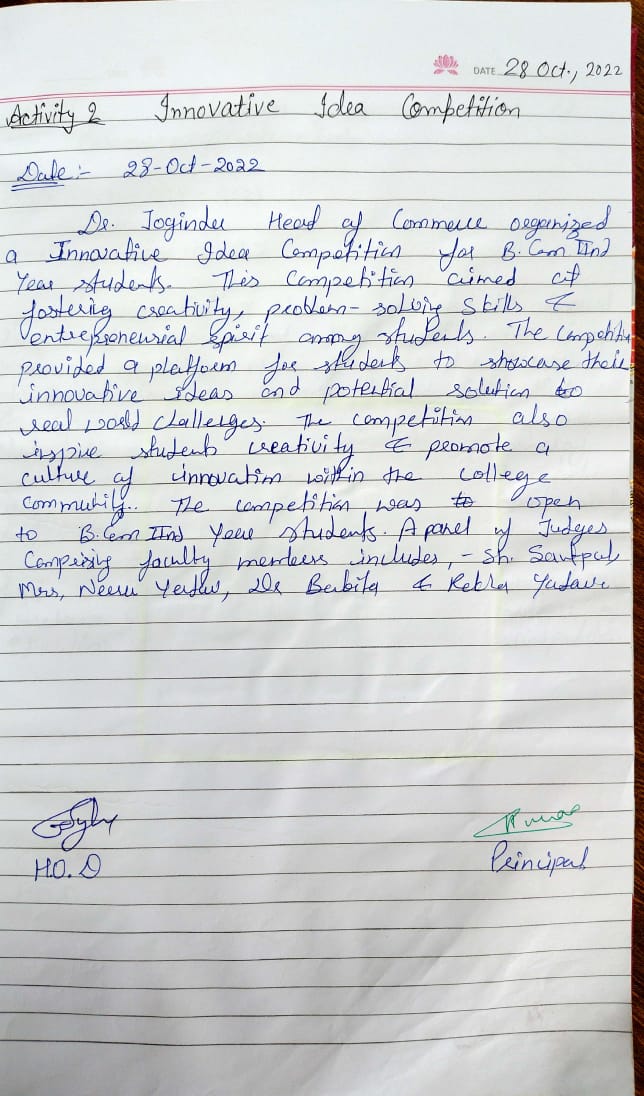 DATE 28 Oct., 2022
Activity 2 Innovative Idea Competition
Date :- 28-Oct-2022
Dr. Joginder Head of Commerce organized
a Innovative Idea Competition for B.Com IInd
Year students. This Competition aimed at
fostering creativity, problem-solving skills &
entrepreneurial spirit among students. The Competition
provided a platform for students to showcase their
innovative ideas and potential solution to
real world challenges. The competition also
inspire students creativity & promote a
culture of innovation within the college
Community. The competition was to open
to B.Com IInd Year students. A panel of Judges
Comprising faculty members includes, - Sh. Satpal,
Mrs, Neeru Yadav, Dr Babita & Rekha Yadav.
H.O.D
Principal